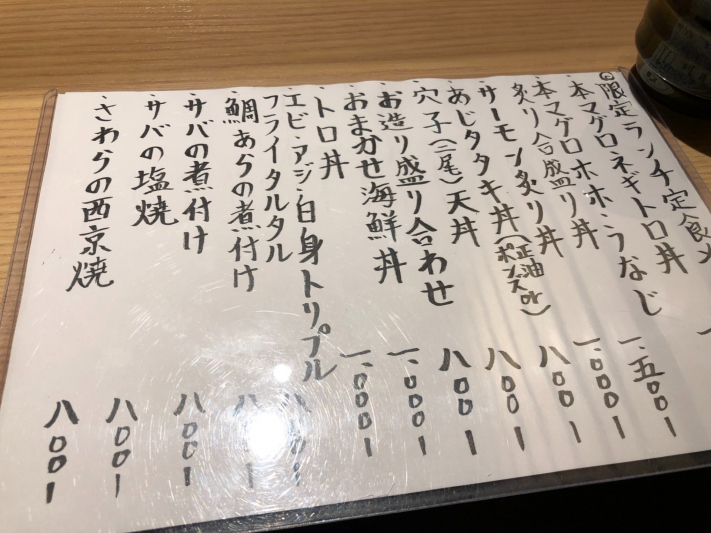 限定ランチ定食
・本マグロネギトロ丼
・本マグロホホ・うなじ
炙り合盛り丼 一、五〇〇ー
・サーモン炙り丼 一、〇〇〇ー
・あじタタキ丼(正油orポンズ) 八〇〇ー
・穴子(二尾)天丼 八〇〇ー
・お造り盛り合わせ 八〇〇ー
・おまかせ海鮮丼 一、〇〇〇ー
・トロ丼 一、〇〇〇ー
・エビ・アジ・白身トリプル
フライタルタル 八〇〇ー
・鯛あらの煮付け 八〇〇ー
・サバの煮付け 八〇〇ー
・サバの塩焼 八〇〇ー
・さわらの西京焼 八〇〇ー